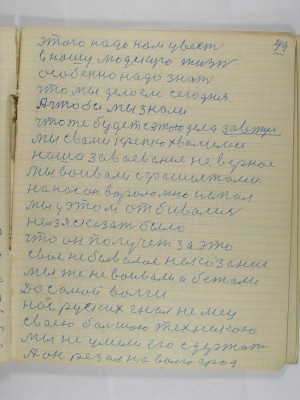 49
этого надо нам цвест
в нашу людскую жизн
особенно надо знат
что мы делоем сегодня
А чтоби мы знали
что те будет с этого дела завтра
мы свами крепко хвалимся
наша завоевание не верное
Мы воивали с фашистами
на нас он вороломно напал
мы с этом отбивалис
незя сказат было
что он получет за это
свое небывалое наказание
мы же не воивали а бежали
До самой волги
нас руских гнал немец
своею болшою техникою
мы не умели его сдержат
А он резал на волгоград